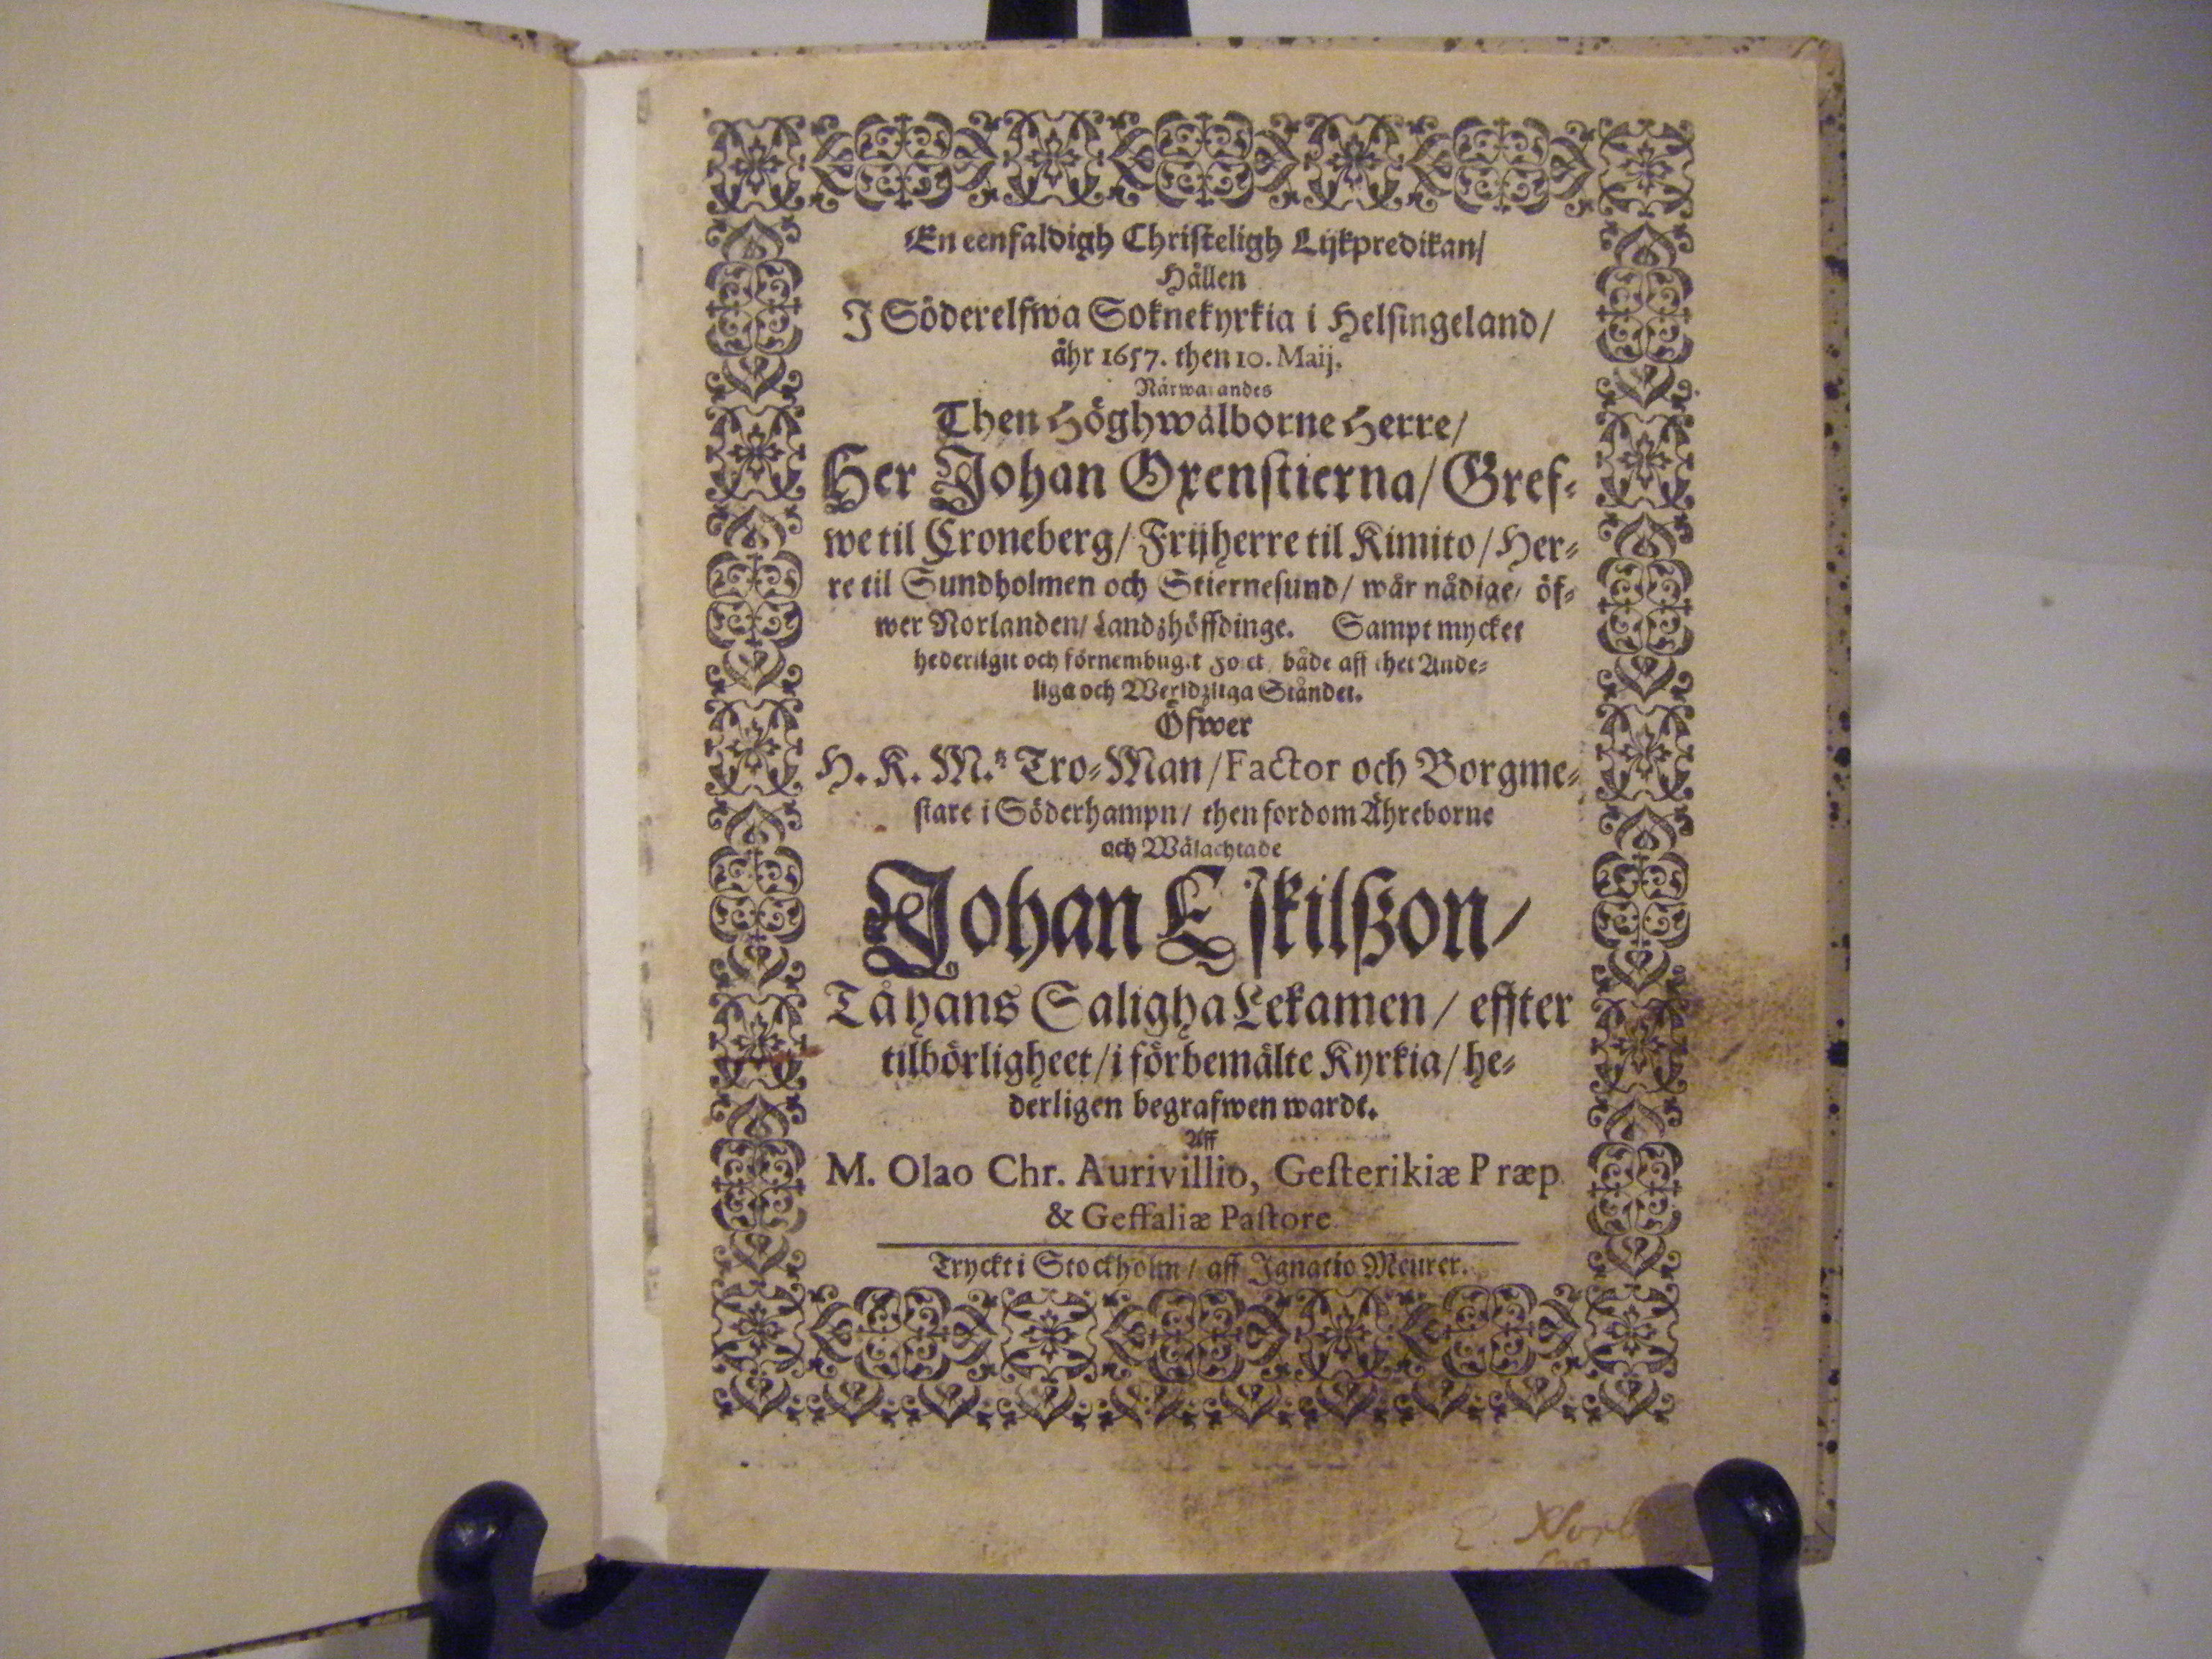 En eenfaldigh Christeligh Lijkpredikan/
Hållen
I Söderelfwa Soknekyrkia i Helsingeland/
åhr 1657. then 10. Maij.
Närwarandes
Then Höghwälborne Herre/
Her Johan Oxenstierna/ Gref-
we til Croneberg/ Frijherre til Kimito/ Her-
re til Sundholmen och Stiernesund/ wår nådige/ öf-
wer Norlanden/ Landzhöffdinge. Sampt mycket
och både aff thet Ande-
liga och Werldzliga Ståndet.
Öfwer
H. K. M.tz Tro-Man/ Factor och Borgme-
stare i Söderhampn/ then fordom Ähreborne
och Wälachtade
Johan Eskilßon/
Tå hans Saligha Lekamen/ effter
tilbörligheet/ i förbemälte Kyrkia/ he-
derligen begrafwen wardt.
Aff
M. Olao Chr. Aurivillio, Gesterikiæ Præp.
& Geffaliæ Pastore.
Tryckt i Stockholm/ aff Ignatio Meurer.
E.